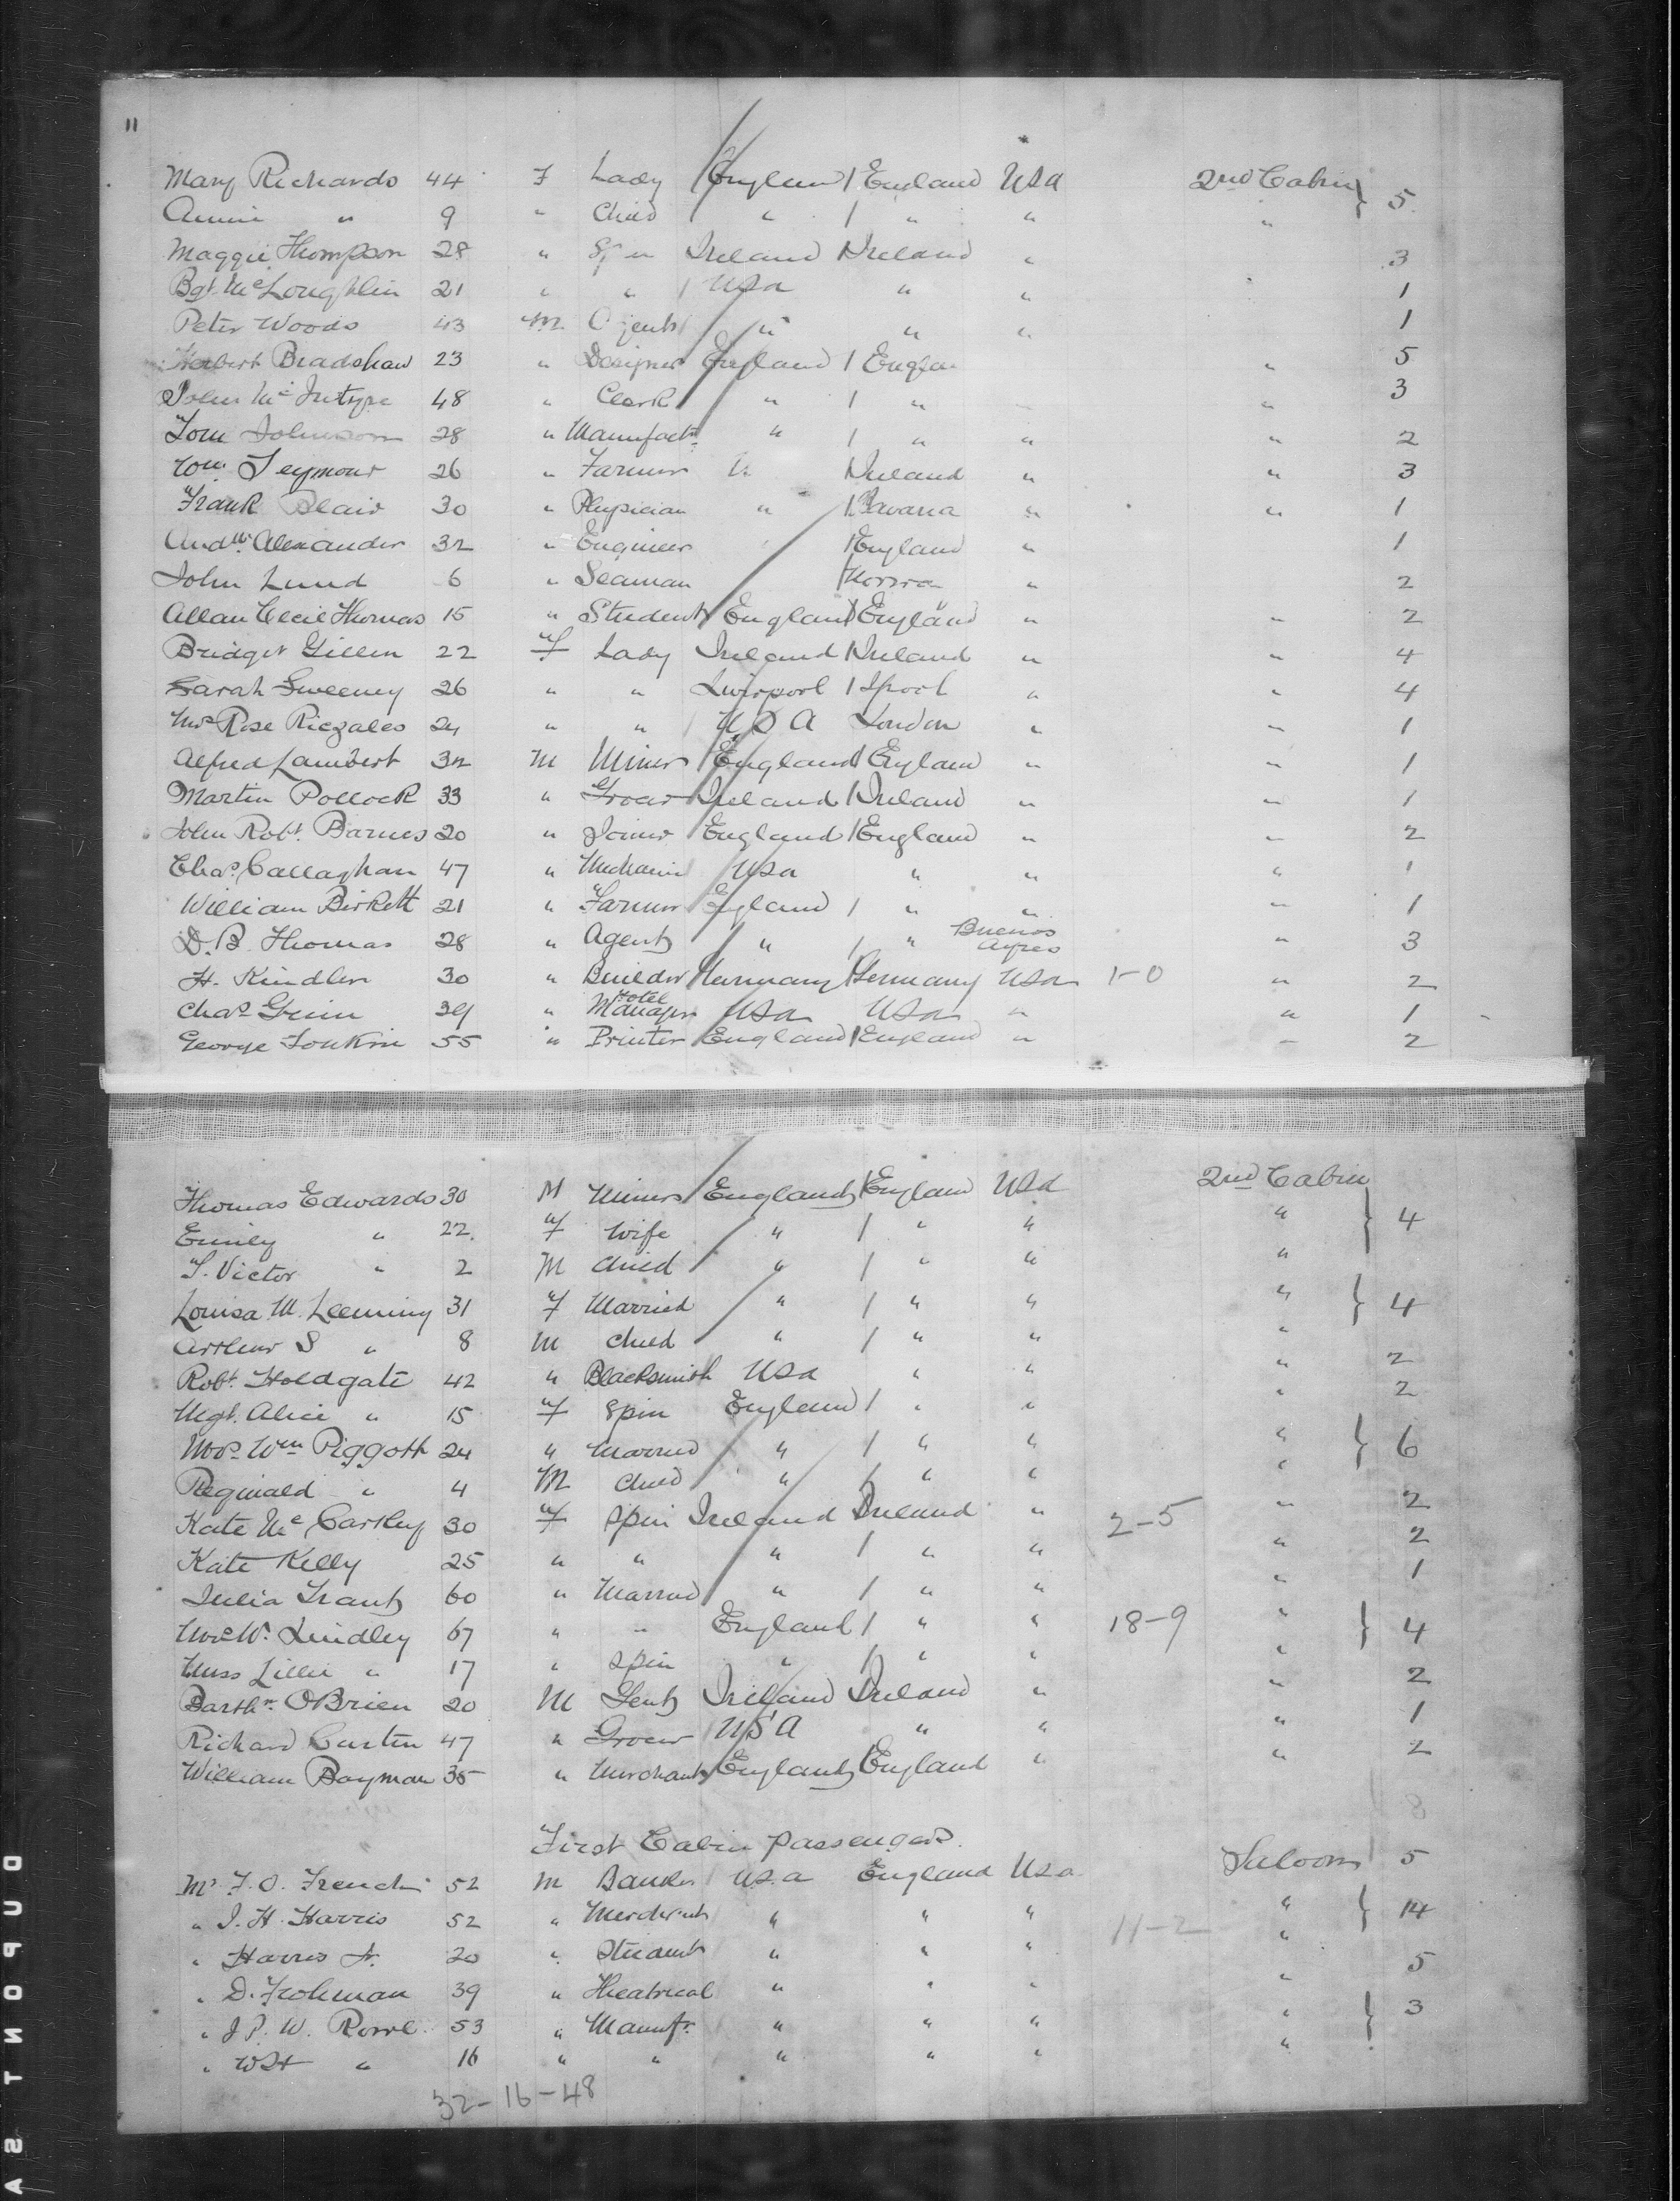 11
Mary Richards 44 F Lady England / England USA 2nd Cabin } 5
Annie " 9 " Child / " / " " "
Maggie Thompson 28 " Spin Ireland / Ireland " 3
Bgt McLoughlin 21 " " / USA " " 1
Peter Woods 43 M Agent / " " " 1
Herbert Bradshaw 23 " Designer England / Englan " 5
John McIntyre 48 " Clerk " / " " 3
Tom Johnson 28 " Manufactr " / " " " 2
Wm Seymour 26 " Farmer " / Ireland " " 3
Frank Blair 30 " Physician " / Bavaria " " 1
Andw Alexander 32 " Engineer / England " 1
John Lund 6 " Seaman / " 2
Allan Cecil Thomas 15 " Student England / England " " 2
Bridget Gillen 22 F Lady Ireland / Ireland " " 4
Sarah Sweeney 26 " " Liverpool / Lpool " " 4
Mrs Rose Riczales 24 " " / USA London " " 1
Alfred Lambert 32 M Miner / England / England " " 1
Martin Pollock 33 " Grocer Ireland / Ireland " " 1
John Robt Barnes 20 " Joiner England / England " " 2
Chas Callaghan 47 " Mechanic USA " " " 1
William Birkett 21 " Farmer England / " " " 1
D. B. Thomas 28 " Agent " / " Buenos Ayres " 3
H. Kindler 30 " Builder Germany / Germany USA 1-0 " 2
Chas Grim 39 " Hotel Manager USA USA " " 1
George Tonkin 55 " Printer England / England " " 2
Thomas Edwards 30 M Miner England / England USA 2nd Cabin
Emily " 22 F Wife " / " " " } 4
T. Victor " 2 M Child " / " " "
Louisa M. Leeming 31 F Married " / " " " } 4
Arthur S " 8 M Child " / " " "
Robt Holdgate 42 " Blacksmith USA " " " 2
Mgt. Alice " 15 F Spin England / " " " 2
Mrs Wm Piggott 24 " Married " / " " " } 6
Reginald " 4 M Child " / " " "
Kate McCarthy 30 F Spin Ireland Ireland " 2-5 " 2
Kate Kelly 25 " " " / " " " 2
Julia Grant 60 " Married " / " " " 1
Mrs W. Lindley 67 " " England / " " 18-9 " } 4
Miss Lillie " 17 " Spin " / " " "
Barthw OBrien 20 M Gent Ireland Ireland " " 2
Richard Curtin 47 " Grocer USA " " " 1
William Bayman 35 " Merchant England England " " 2
8
First Cabin Passengers
Mr F. O. French 52 M Banker USA England USA Saloon 5
" J. H. Harris 52 " Merchant " " " 11-2 " } 14
" Harris Jr. 20 " Student " " " "
" D. Frohman 39 " Theatrical " " " " 5
" J P. W. Rowe 53 " Manufr " " " " } 3
" WH " 16 " " " " " "
32-16-48
DUPONT SA